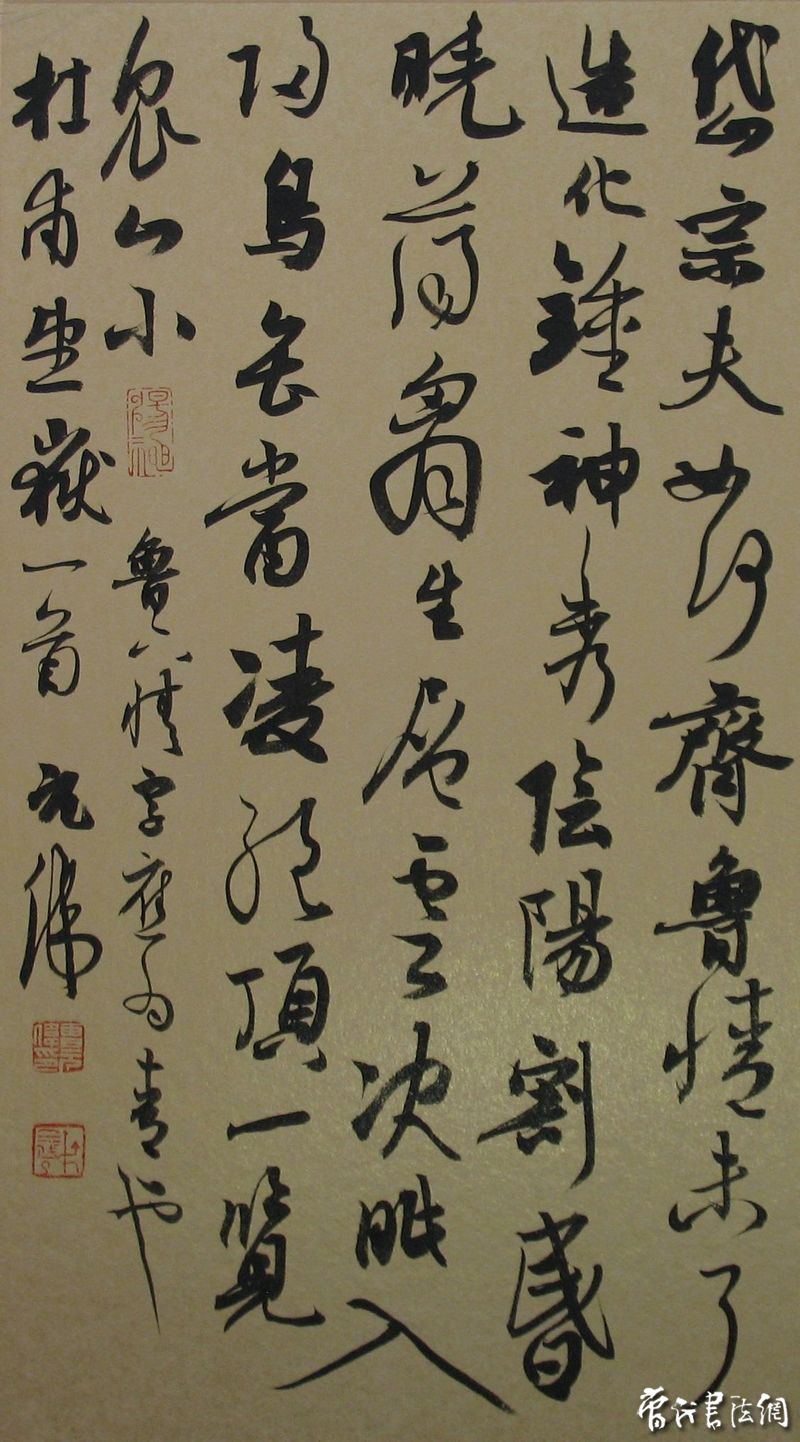 岱宗夫如何齊魯情未了
造化鍾神秀陰陽割昏
曉蕩胷生層雲決眦入
歸鳥會當凌絕頂一覽
衆山小 魯下情字應为青也
杜甫望嶽一首 元偉
當代書法網